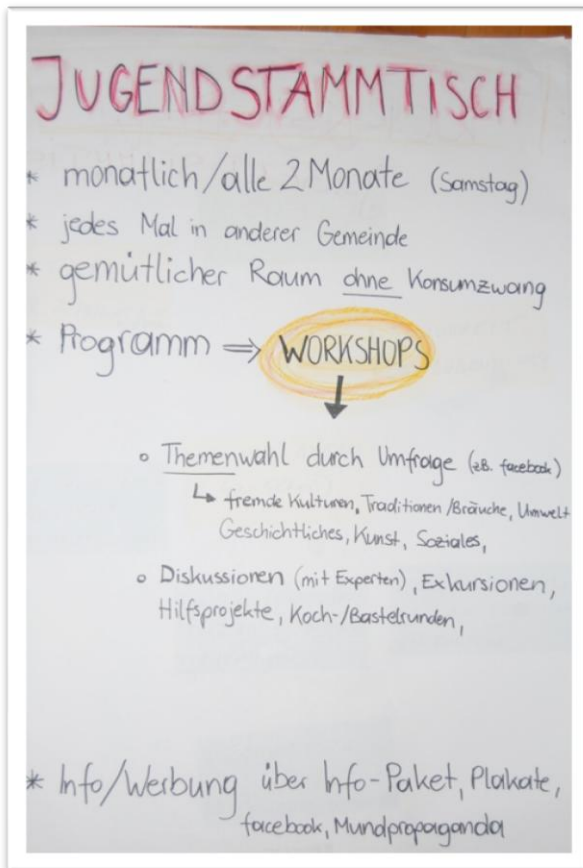 JUGENDSTAMMTISCH
* monatlich/alle 2 Monate (Samstag)
* jedes Mal in anderer Gemeinde
* gemütlicher Raum ohne Konsumzwang
* Programm ⇒ WORKSHOPS
↓
o Themenwahl durch Umfrage (zB. facebook)
↳ fremde Kulturen, Traditionen/Bräuche, Umwelt
Geschichtliches, Kunst, Soziales,
o Diskussionen (mit Experten), Exkursionen,
Hilfsprojekte, Koch-/Bastelrunden,
* Info/Werbung über Info-Paket, Plakate,
facebook, Mundpropaganda